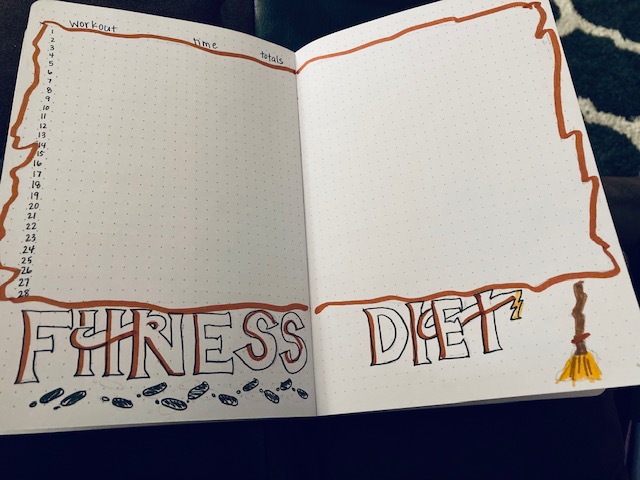 workout time totals
1
2
3
4
5
6
7
8
9
10
11
12
13
14
15
16
17
18
19
20
21
22
23
24
25
26
27
28
FITNESS DIET